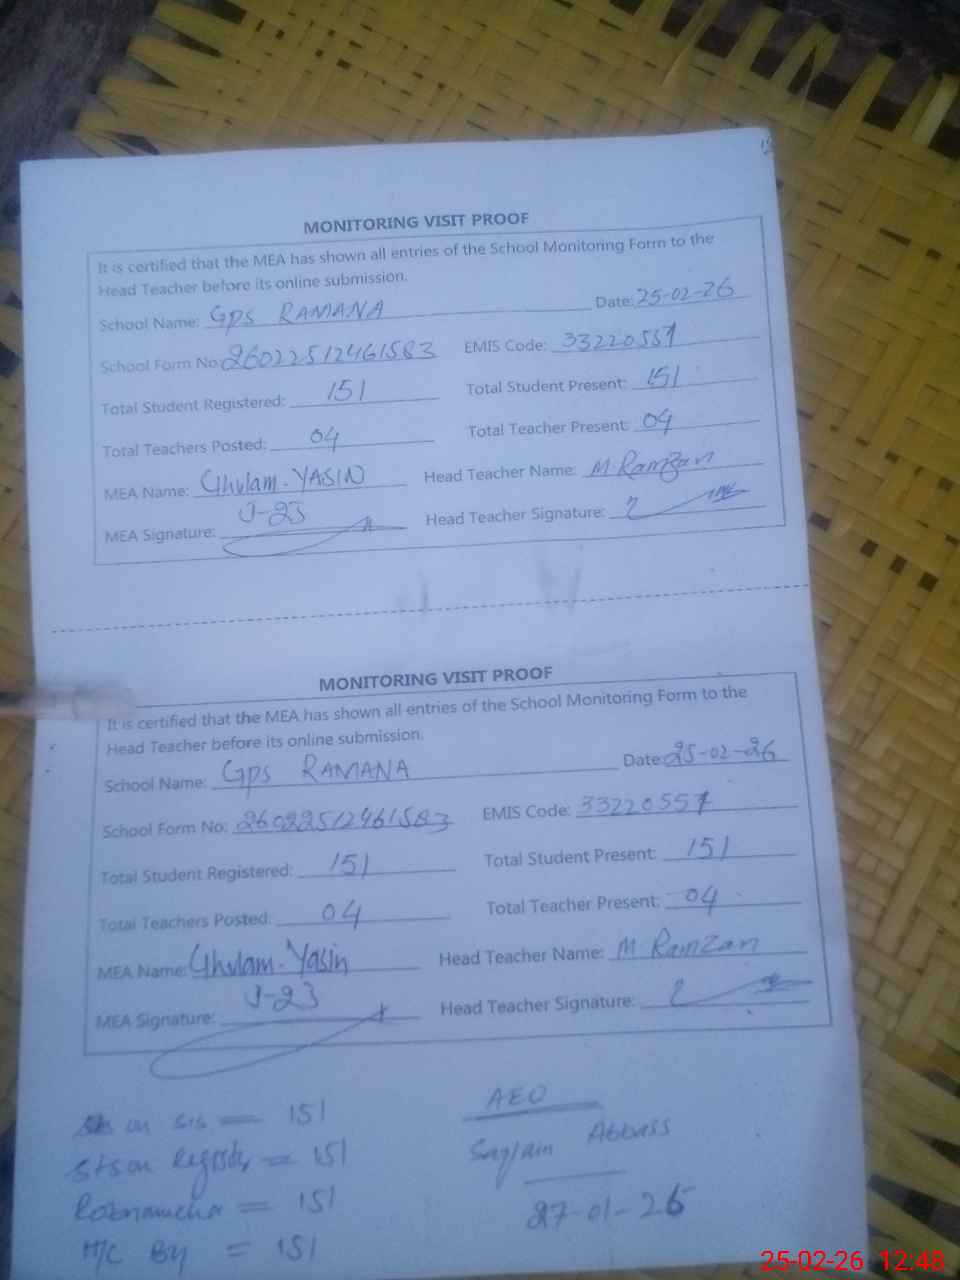 MONITORING VISIT PROOF
It is certified that the MEA has shown all entries of the School Monitoring Form to the
Head Teacher before its online submission.
School Name: GPS RAMANA Date: 25-02-26
School Form No: 26022512461583 EMIS Code: 33220557
Total Student Registered: 151 Total Student Present: 151
Total Teachers Posted: 04 Total Teacher Present: 04
MEA Name: Ghulam-YASIN Head Teacher Name: M.Ramzan
J-23
MEA Signature: Head Teacher Signature:
MONITORING VISIT PROOF
It is certified that the MEA has shown all entries of the School Monitoring Form to the
Head Teacher before its online submission.
School Name: GPS RAMANA Date: 25-02-26
School Form No: 26022512461583 EMIS Code: 33220557
Total Student Registered: 151 Total Student Present: 151
Total Teachers Posted: 04 Total Teacher Present: 04
MEA Name: Ghulam-Yasin Head Teacher Name: M Ramzan
J-23
MEA Signature: Head Teacher Signature:
Sts on SIS = 151
Sts on Register = 151
Roznamcha = 151
H/C By = 151
AEO
Saqlain Abbass
27-01-26
25-02-26 12:48